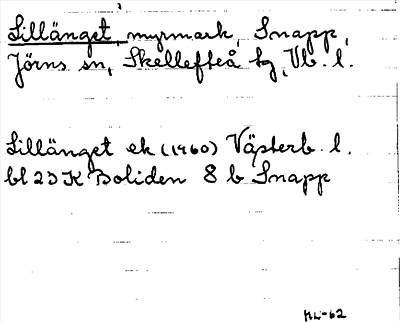 Lillänget, myrmark, Snapp,
Jörns sn, Skellefteå tg, Vb. l.
Lillänget ek (1960) Västerb. l.
bl 23 K Boliden 8 b Snapp
NL-62